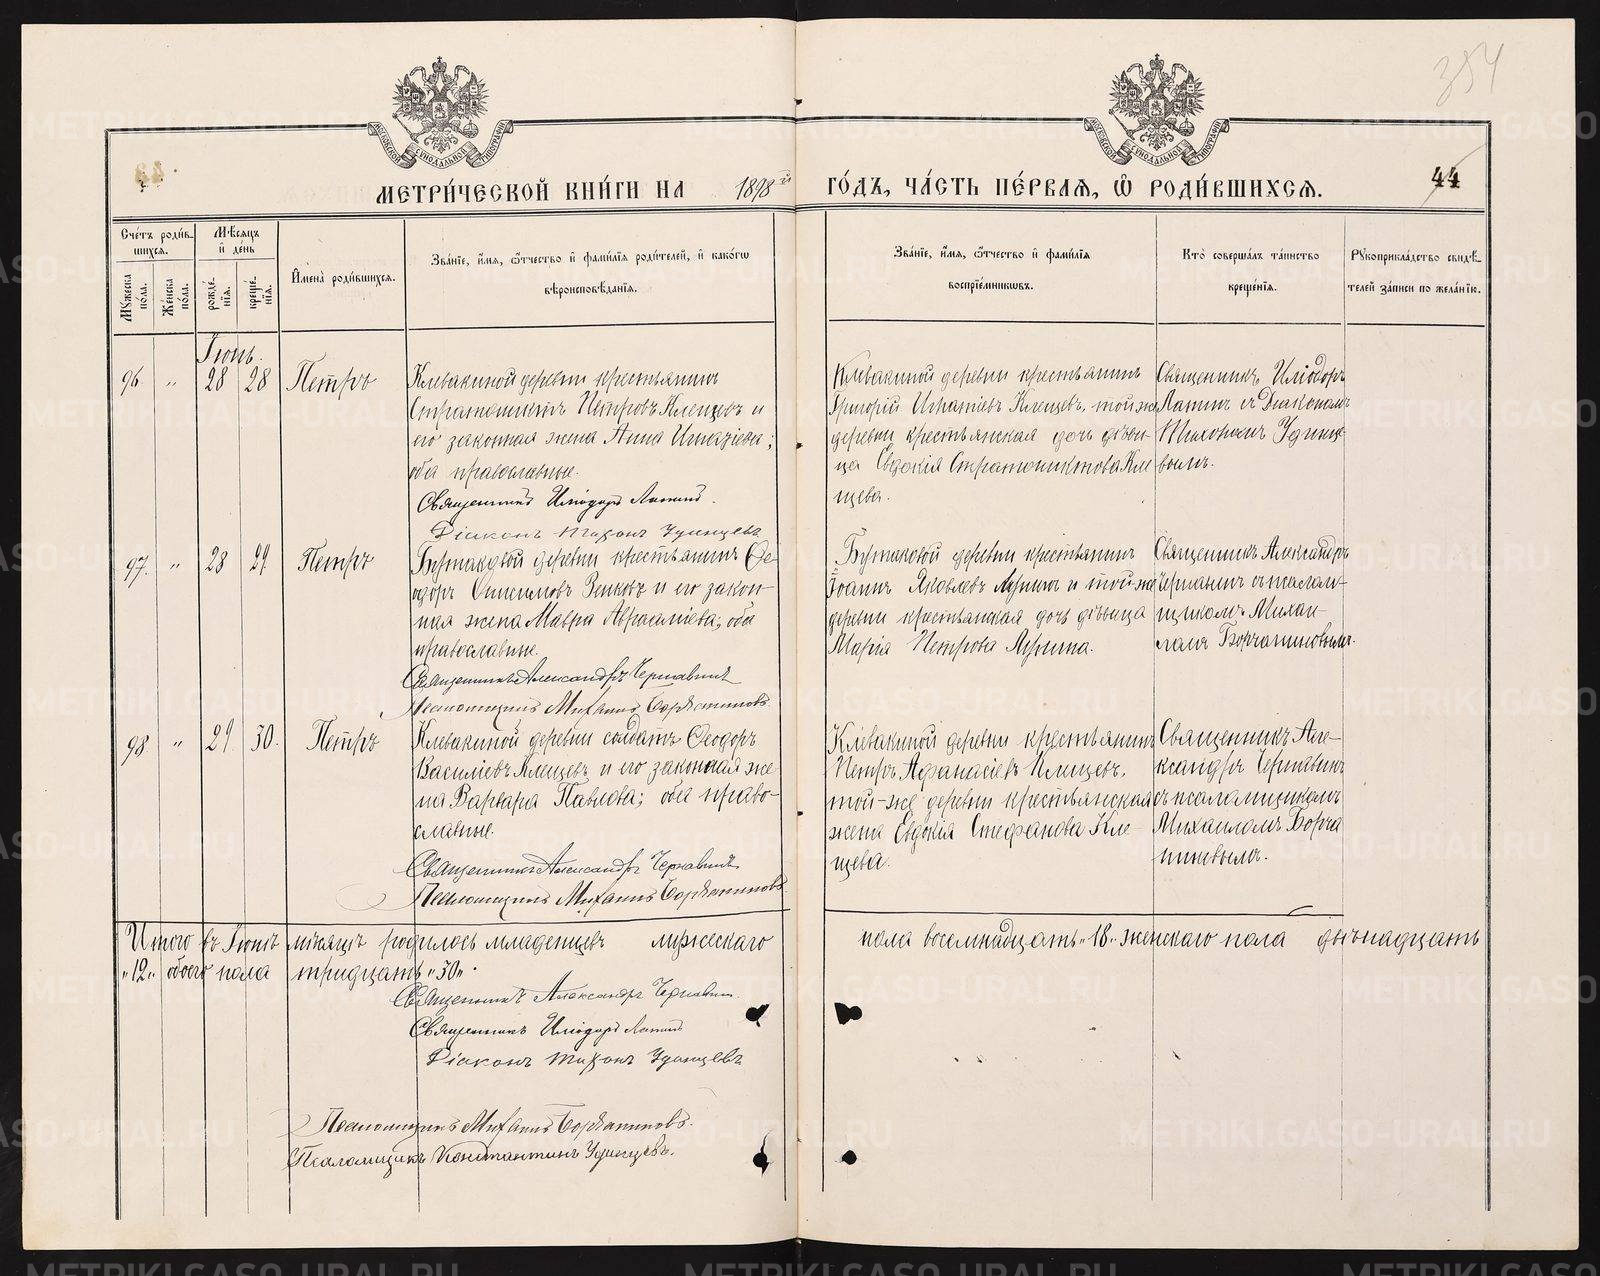 354
44
МЕТРИ́ЧЕСКОЙ КНИ́ГИ НА 1898й ГО́ДЪ, ЧА́СТЬ ПЕ́РВАѦ, Ѽ РОДИ́ВШИХСѦ.
Сче́тъ роди́вшихсѧ.
Мꙋ́жеска по́ла.
Же́нска по́ла.
Мѣ́сѧцъ и҆ де́нь
рожде́нїѧ.
креще́нїѧ.
И҆мена̀ роди́вшихсѧ.
Зва́нїе, и҆́мѧ, ѻ҆́тчество и҆ фами́лїѧ роди́телей, и҆ како́гѡ
вѣроисповѣ́данїѧ.
Зва́нїе, и҆́мѧ, ѻ҆́тчество и҆ фами́лїѧ
воспрїе́мниковъ.
Кто̀ соверша́лъ та́инство
креще́нїѧ.
Рꙋкоприкла́дство свидѣ́-
телей за́писи по жела́нїю.
Іюнь.
96. „ 28 28 Петръ
Клевакиной деревни крестьянинъ
Стратоникъ Петровъ Клещевъ и
его законная жена Анна Игнатіева;
оба православные.
Священникъ Иліодоръ Лапинъ.
Діаконъ Тихонъ Удинцевъ
Клевакиной деревни крестьянинъ
Григорій Игнатіевъ Клещевъ, той же
деревни крестьянская дочь дѣви-
ца Евдокія Стратоникова Кле
щева.
Священникъ Иліодоръ
Лапинъ съ Діакономъ
Тихономъ Удинце-
вымъ.
97. „ 28 29 Петръ
Бутаковой деревни крестьянинъ Ѳе-
одоръ Онисимовъ Зыковъ и его закон-
ная жена Мавра Авраамиева; оба
православные.
Священникъ Александръ Чернавинъ
Псаломщикъ Михаилъ Борчаниновъ
Бутаковой деревни крестьянинъ
Іоаннъ Яковлевъ и той-же
деревни крестьянская дочь дѣвица
Марія Петрова
Священникъ Александръ
Чернавинъ съ псалом-
щикомъ Михаи-
ломъ Борчаниновымъ.
98 „ 29 30. Петръ
Клевакиной деревни солдатъ Ѳеодоръ
Василіевъ Клещевъ и его законная же
на Варвара Павлова; оба право-
славные.
Священникъ Александръ Чернавинъ
Псаломщикъ Михаилъ Борчаниновъ
Клевакиной деревни крестьянинъ
Петръ Афанасіевъ Клещевъ,
той-же деревни крестьянская
жена Евдокія Стефанова Кле
щева.
Священникъ Але-
ксандръ Чернавинъ
съ псаломщикомъ
Михаиломъ Борча
ниновымъ.
Итого въ Іюнѣ мѣсяцѣ родилось младенцевъ мужескаго пола восемнадцать „18„ женскаго пола двѣнадцать
„12„ обоего пола тридцать „30„.
Священникъ Александръ Чернавинъ
Священникъ Иліодоръ Лапинъ
Діаконъ Тихонъ Удинцевъ
Псаломщикъ Михаилъ Борчаниновъ.
Псаломщикъ Константинъ Удинцевъ.